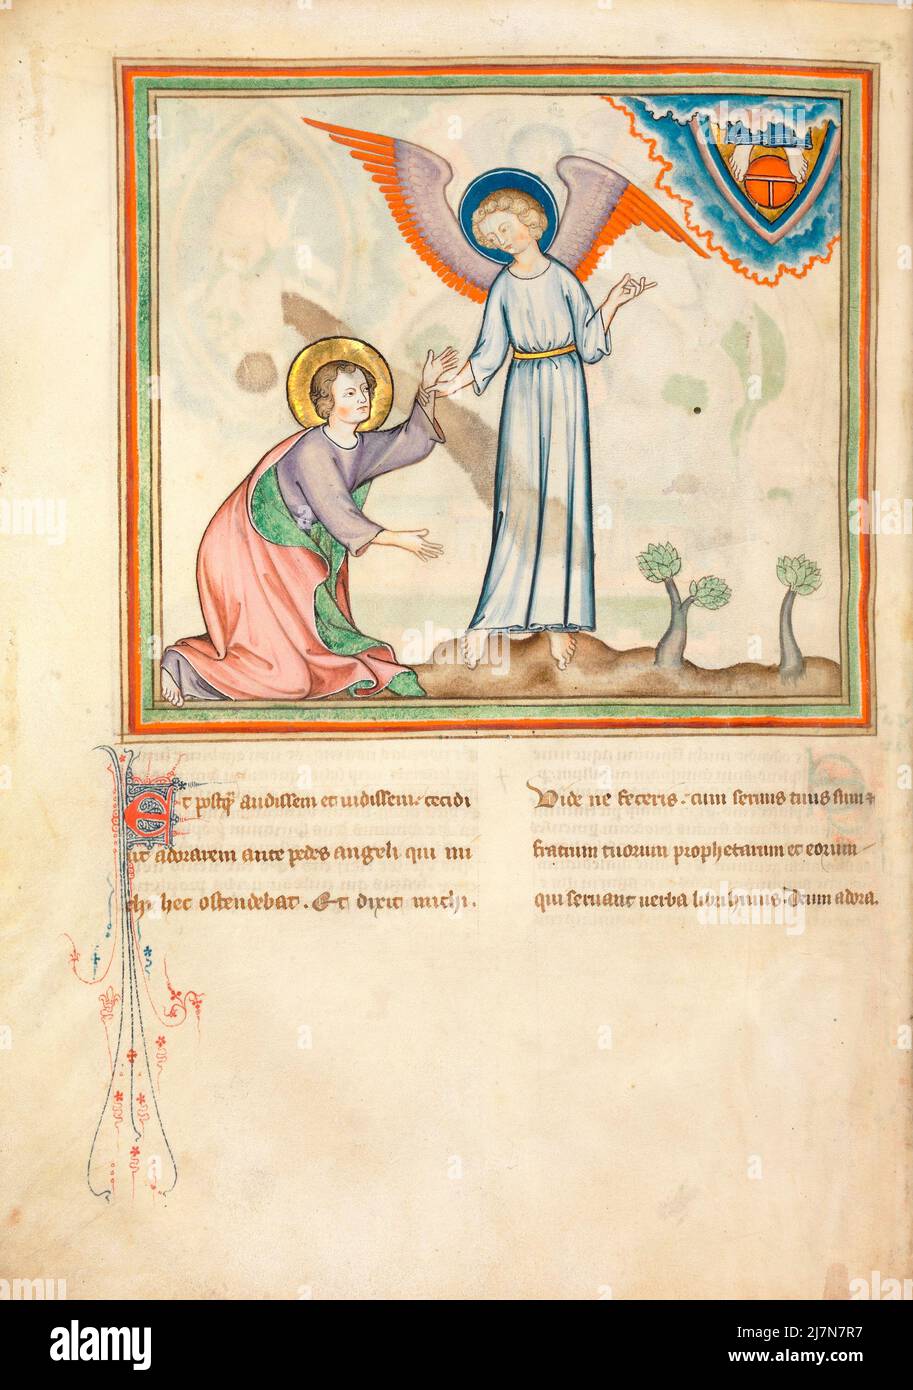 Et postq̄ audissem et uidissem. cecidi
ut adorarem ante pedes angeli qui mi
chi hec ostendebat. Et dixit michi.
Vide ne feceris. cum seruus tuus sum ⁊
fratrum tuorum prophetarum et eorum
qui seruant uerba libri huius. Deum adora.
alamy
Image ID: 2J7N7R7
www.alamy.com